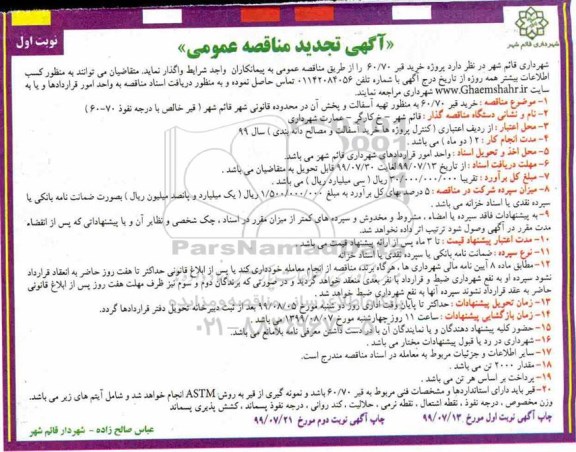 شهرداری قائم شهر
«آگهی تجدید مناقصه عمومی»
نوبت اول
شهرداری قائم شهر در نظر دارد پروژه خرید قیر ۶۰/۷۰ را از طریق مناقصه عمومی به پیمانکاران واجد شرایط واگذار نماید. متقاضیان می توانند به منظور کسب
اطلاعات بیشتر همه روزه از تاریخ درج آگهی با شماره تلفن ۰۱۱۴۲۰۸۴۰۵۶ تماس حاصل نموده و به منظور دریافت اسناد مناقصه به واحد امور قراردادها و یا به
سایت www.Ghaemshahr.ir شهرداری مراجعه نمایند.
۱- موضوع مناقصه : خرید قیر ۶۰/۷۰ به منظور تهیه آسفالت و پخش آن در محدوده قانونی شهر قائم شهر ( قیر خالص با درجه نفوذ ۷۰-۶۰ )
۲- نام و نشانی دستگاه مناقصه گذار : قائم شهر - خ کارگر - عمارت شهرداری
۳- محل اعتبار : از ردیف اعتباری ( کنترل پروژه ها خرید آسفالت و مصالح دانه بندی ) سال ۹۹
۴- مدت انجام کار : ۲ ( دو ماه ) می باشد .
۵- محل اخذ و تحویل اسناد : واحد امور قراردادهای شهرداری قائم شهر می باشد.
۶- مهلت دریافت اسناد : از تاریخ ۹۹/۰۷/۱۳ لغایت ۹۹/۰۷/۳۰ قابل تحویل به متقاضیان می باشد .
۷- مبلغ کل برآورد : تقریبا ۳۰/۰۰۰/۰۰۰/۰۰۰ ریال ( سی میلیارد ریال ) می باشد .
۸- میزان سپرده شرکت در مناقصه : ۵ درصد بهای کل برآورد به مبلغ ۱/۵۰۰/۰۰۰/۰۰۰ ریال ( یک میلیارد و پانصد میلیون ریال ) بصورت ضمانت نامه بانکی یا
سپرده نقدی یا اسناد خزانه می باشد .
۹- به پیشنهادات فاقد سپرده یا امضاء ، مشروط و مخدوش و سپرده های کمتر از میزان مقرر در اسناد ، چک شخصی و نظایر آن و یا پیشنهاداتی که پس از انقضاء
مدت مقرر در آگهی وصول شود ترتیب اثر داده نخواهد شد.
۱۰- مدت اعتبار پیشنهاد قیمت : تا ۳ ماه پس از ارائه پیشنهاد قیمت می باشد.
۱۱- نوع سپرده : ضمانت نامه بانکی یا سپرده نقدی یا اسناد خزانه
۱۲- مطابق ماده ۸ آیین نامه مالی شهرداری ها ، هرگاه برنده مناقصه از انجام معامله خودداری کند یا پس از ابلاغ قانونی حداکثر تا هفت روز حاضر به انعقاد قرارداد
نشود سپرده او به نفع شهرداری ضبط و قرارداد با نفر بعدی منعقد خواهد گردید و در صورتی که برندگان دوم و سوم نیز ظرف مهلت هفت روز پس از ابلاغ قانونی
حاضر به عقد قرارداد نشوند سپرده آنها به نفع شهرداری ضبط خواهد شد.
۱۳- زمان تحویل پیشنهادات : حداکثر تا پایان وقت اداری روز دو شنبه مورخ ۹۹/۰۸/۰۵ بعد از ثبت دبیرخانه تحویل دفتر قراردادها گردد.
۱۴- زمان بازگشایی پیشنهادات : ساعت ۱۱ روز چهارشنبه مورخ ۱۳۹۹/۰۸/۰۷ می باشد .
۱۵- حضور کلیه پیشنهاد دهندگان و یا نمایندگان آن با در دست داشتن معرفی نامه بلامانع می باشد.
۱۶- شهرداری در رد یا قبول پیشنهادات مختار می باشد .
۱۷- سایر اطلاعات و جزئیات مربوط به معامله در اسناد مناقصه مندرج است.
۱۸- مقدار ۲۰۰۰ تن می باشد .
۱۹- پرداخت بر اساس هر تن می باشد .
۲۰- قیر باید دارای استانداردها و مشخصات فنی مربوط به قیر ۶۰/۷۰ باشد و نمونه گیری از قیر به روش ASTM انجام خواهد شد و شامل آیتم های زیر می باشد.
وزن مخصوص ، درجه نفوذ ، نقطه اشتعال ، نقطه نرمی ، حلالیت ، کند روانی ، درجه نفوذ پسماند ، کشش پذیری پسماند
چاپ آگهی نوبت اول مورخ ۹۹/۰۷/۱۳ چاپ آگهی نوبت دوم مورخ ۹۹/۰۷/۲۱
عباس صالح زاده - شهردار قائم شهر
ParsNamadData